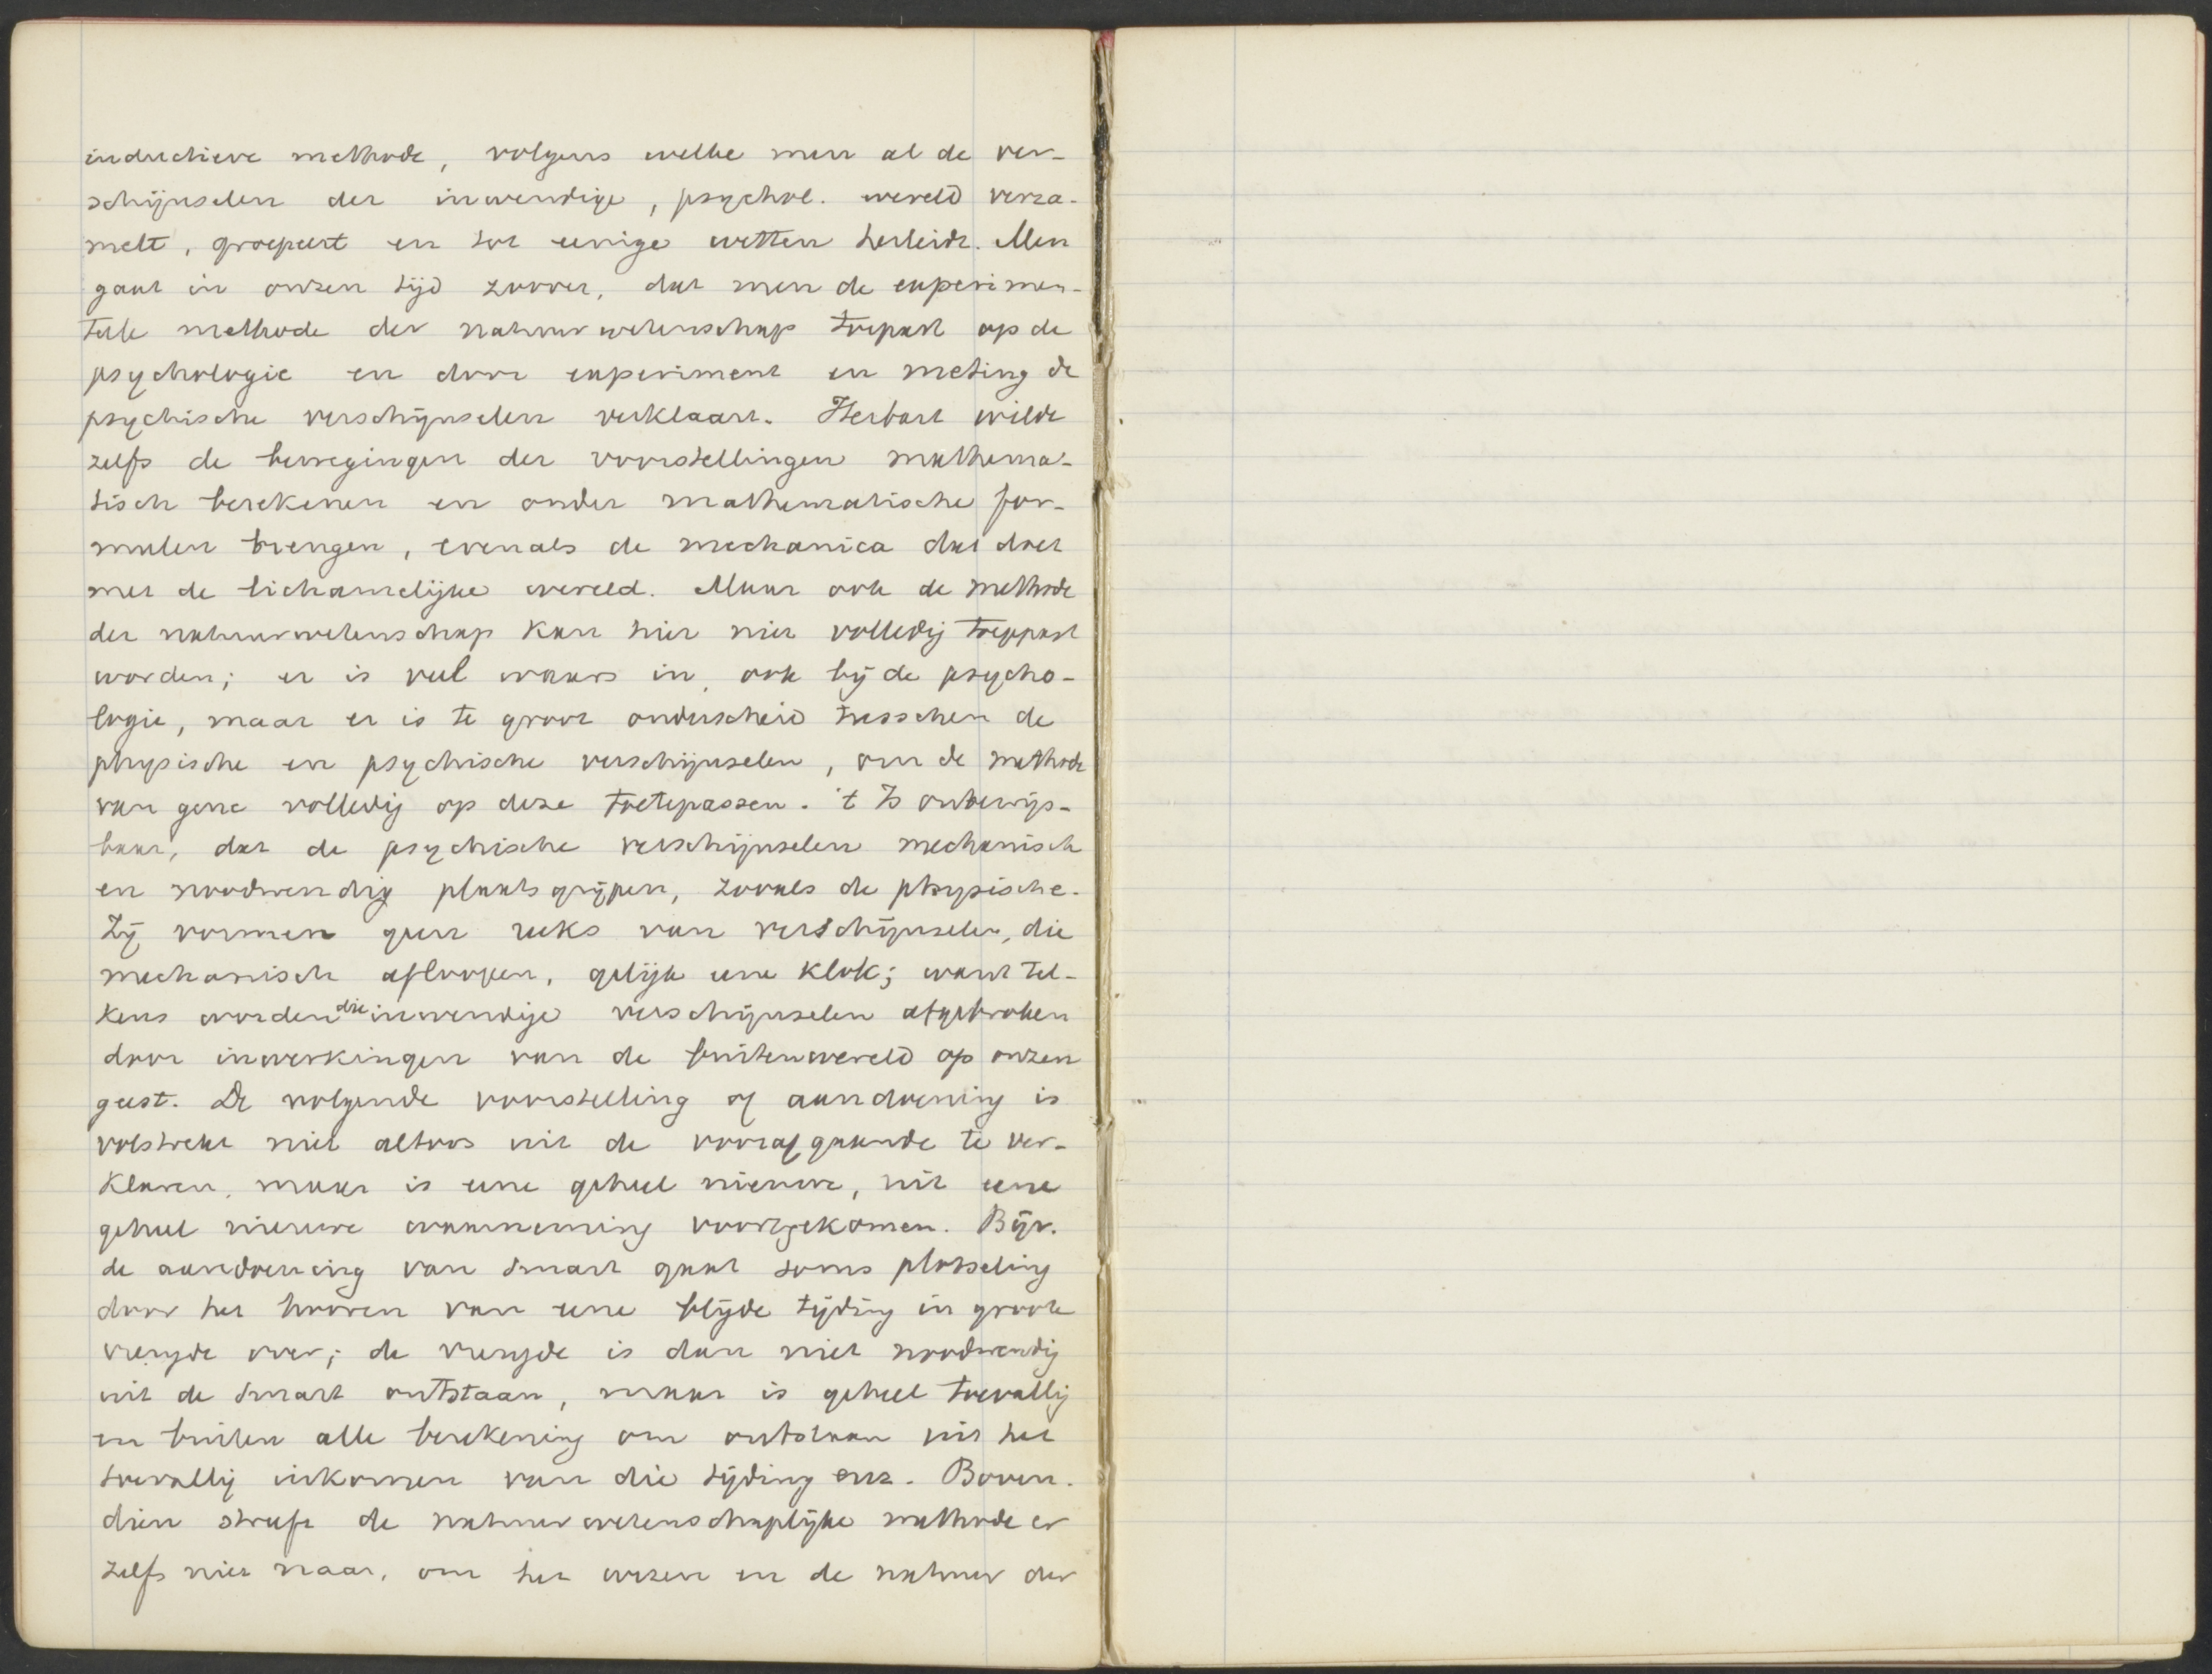 inductieve methode, volgens welke men al de ver-
schijnselen der inwendige, psychol. wereld verza-
melt, groepeert en tot eenige wetten herleidt. Men
gaat in onzen tijd zoover, dat men de experimen-
teele methode der natuurwetenschap toepast op de
psychologie en door experiment en meting de
psychische verschijnselen verklaart. Herbart wilde
zelfs de bewegingen der voorstellingen mathema-
tisch berekenen en onder mathematische for-
mulen brengen, evenals de mechanica dat doet
met de lichamelijke wereld. Maar ook de methode
der natuurwetenschap kan hier niet volledig toegepast
worden; er is veel waars in, ook bij de psycho-
logie, maar er is te groot onderscheid tusschen de
physische en psychische verschijnselen, om de methode
van gene volledig op deze toetepassen. 't Is onbewijs-
baar, dat de psychische verschijnselen mechanisch
en noodwendig plaats grijpen, zooals de physische.
Zij vormen geen reeks van verschijnselen, die
mechanisch afloopen, gelijk eene klok; want tel-
kens worden die inwendige verschijnselen afgebroken
door inwerkingen van de buitenwereld op onzen
geest. De volgende voorstelling of aandoening is
volstrekt niet altoos uit de voorafgaande te ver-
klaren, maar is eene geheel nieuwe, uit eene
geheel nieuwe waarneming voortgekomen. Bijv.
de aandoening van smart gaat soms plotseling
door het hooren van eene blijde tijding in groote
vreugde over; de vreugde is dan niet noodwendig
uit de smart ontstaan, maar is geheel toevallig
en buiten alle berekening om ontstaan uit het
toevallig inkomen van die tijding enz. Boven-
dien streeft de natuurwetenschaplijke methode er
zelfs niet naar, om het wezen en de natuur der